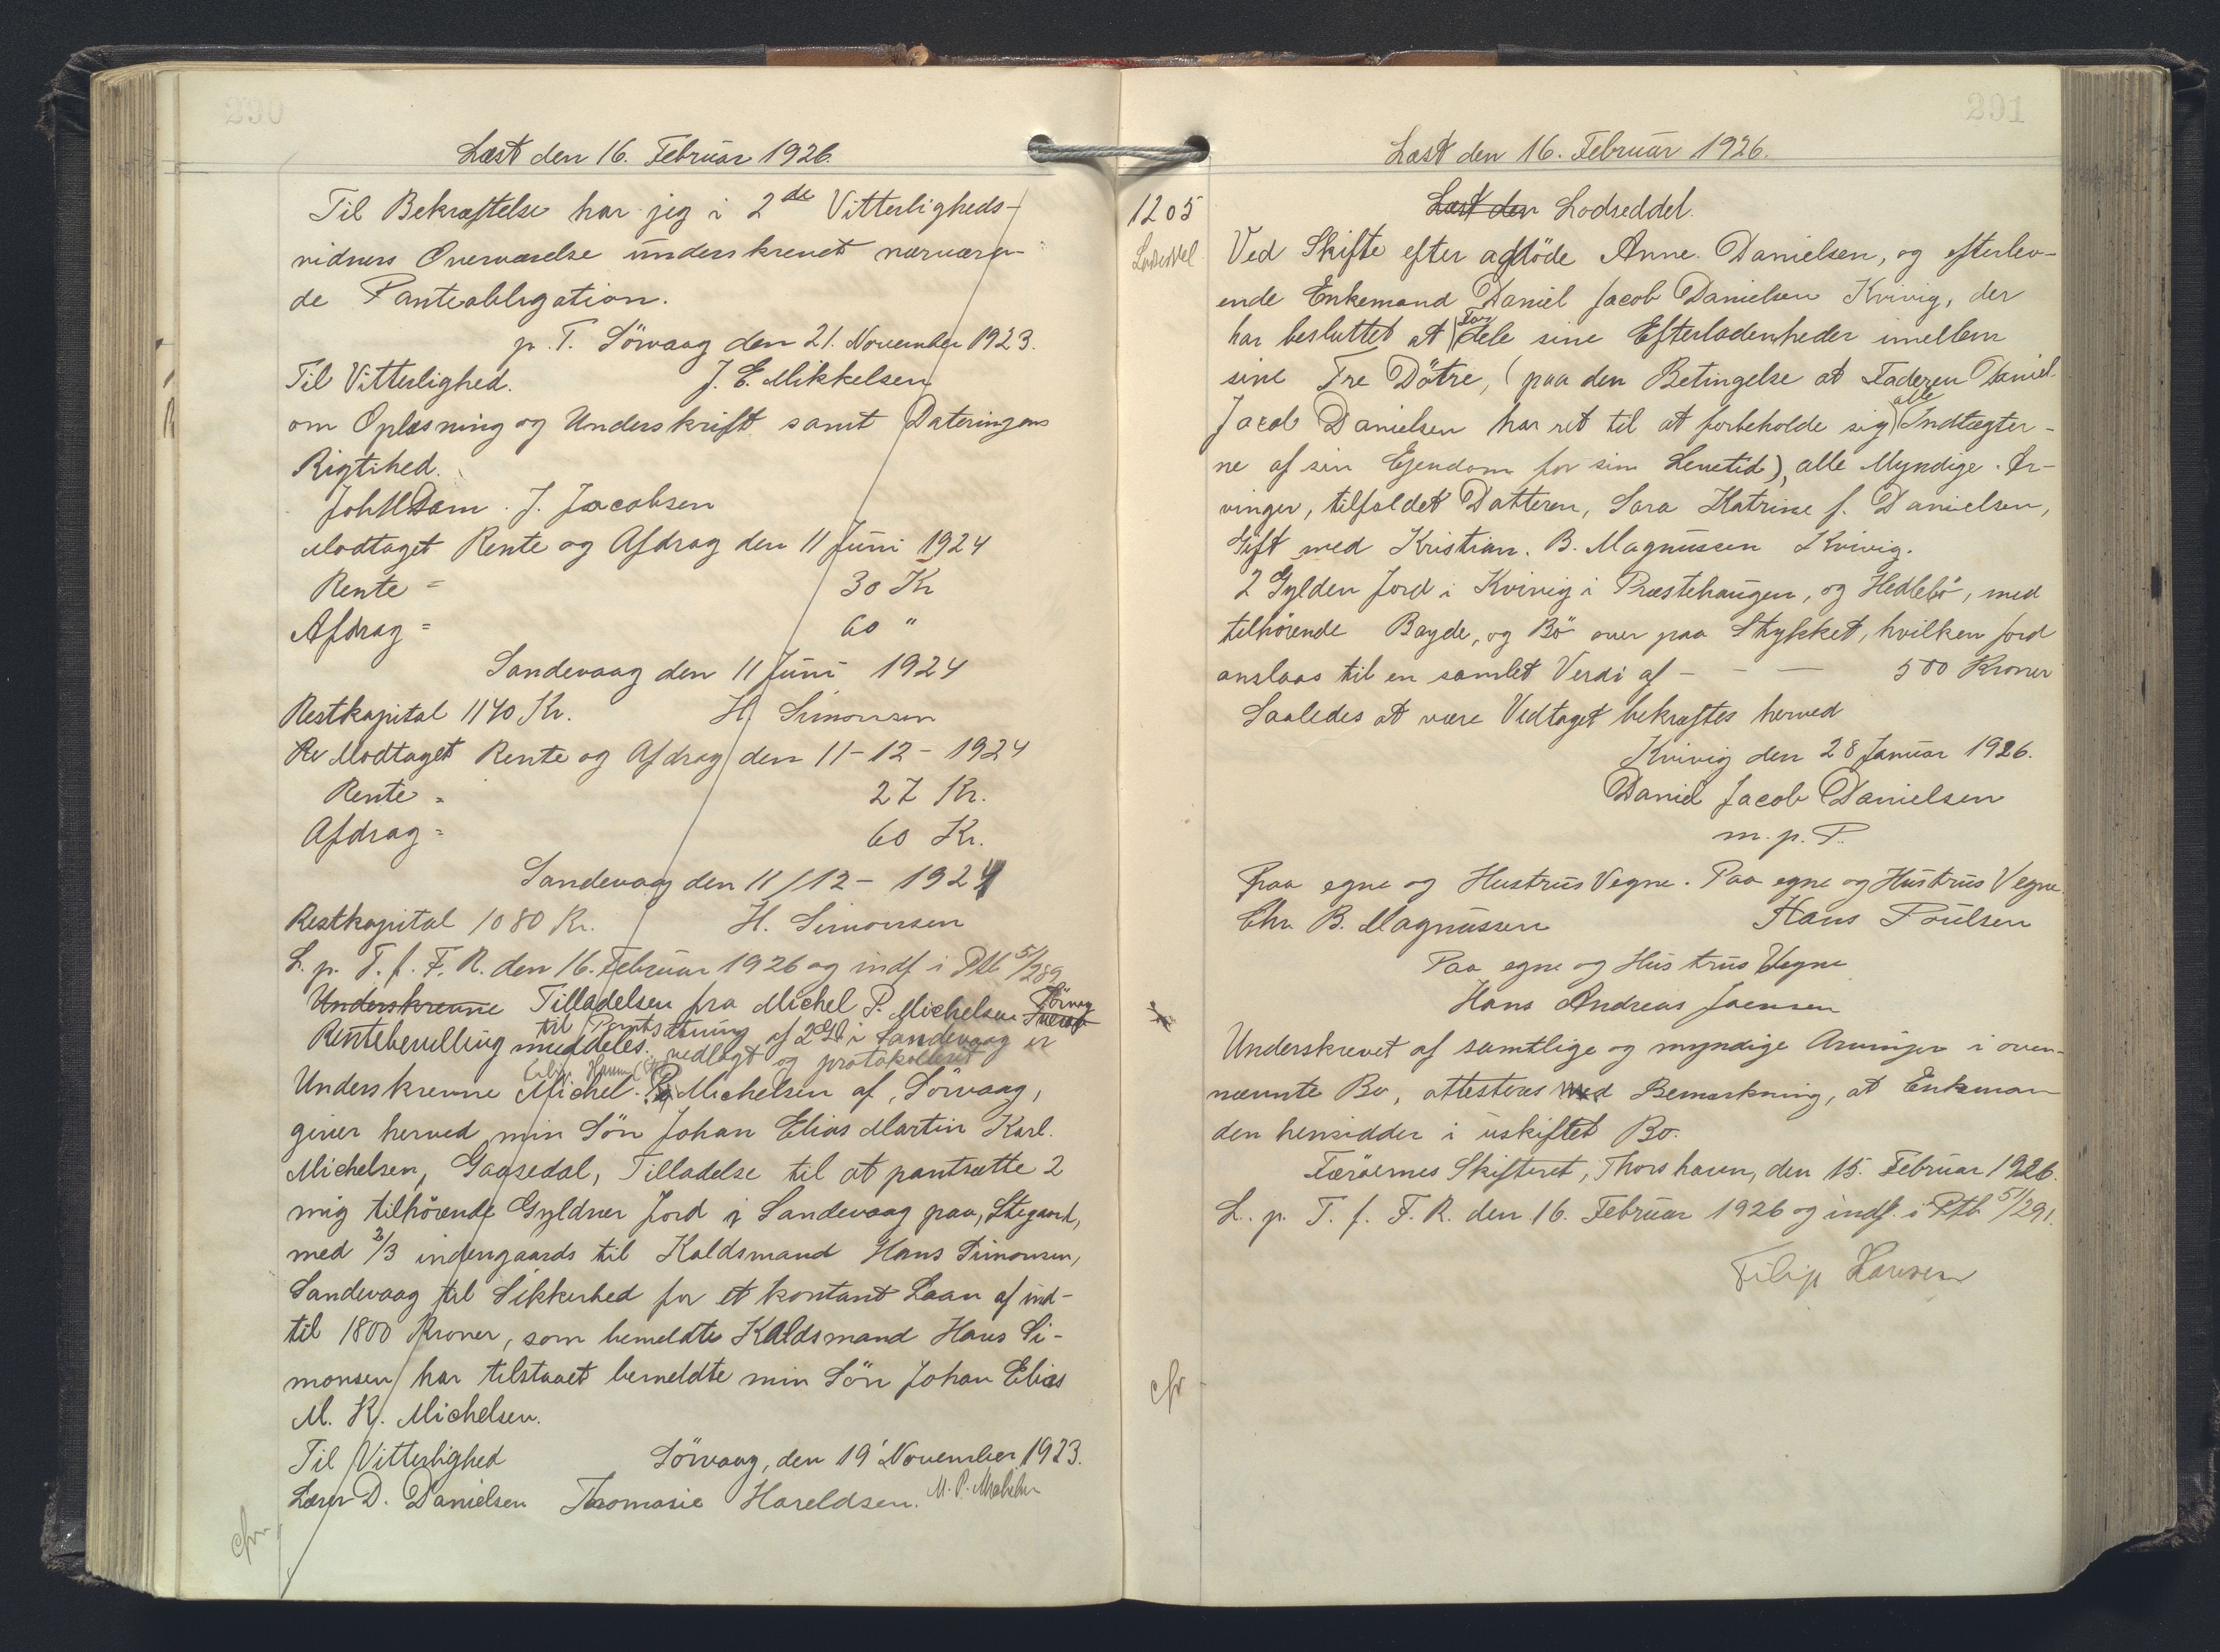 290
Læst den 16. Februar 1926.
Til Bekræftelse har jeg i 2de Vitterligheds-
vidners Overværelse underskrevet nærværen-
de Panteobligation.
p. T. Sörvaag den 21. November 1923.
Til Vitterlighed. J. E. Mikkelsen
om Oplæsning og Underskrift samt Dateringens
Rigtihed.
Joh Dam. J. Jacobsen
Modtaget Rente og Afdrag den 11 Juni 1924
Rente = 30 Kr
Afdrag = 60 "
Sandevaag den 11 Juni 1924
Restkapital 1140 Kr. H. Simonsen
Re Modtaget Rente og Afdrag den 11-12-1924
Rente = 27 Kr.
Afdrag = 60 Kr.
Sandevaag den 11/12- 1924
Restkapital 1080 Kr. H. Simonsen
L. p. T. f. F. R. den 16. Februar 1926 og indf i Ptb 51/289
Underskrevne Tilladelsen fra Michel P. Michelsen Sörvag
til Pantsætning af 2 Gl i Sandevaag er
Rentebevilling meddeles. vedlagt og protokolleret
Underskrevne Michel P. Michelsen af, Sörvaag,
giver herved min Sön Johan Elias Martin Karl.
Michelsen, Gaasedal, Tilladelse til at pantsætte 2
mig tilhörende Gyldner Jord i Sandevaag paa, Stegard,
med 2/3 indengaards til Kaldsmand Hans Simonsen,
Sandevaag til Sikkerhed for et kontant Laan af ind-
til 1800 Kroner, som bemeldte Kaldsmand Hans Si-
monsen har tilstaaet bemeldte min Sön Johan Elias
M. K. Michelsen.
Til Vitterlighed Sörvaag, den 19' November 1923.
Lærer D. Danielsen Thomasie Hareldsen. M. P. Michelsen
cfr
291
Læst den 16. Februar 1926.
1205 Læst den Lodseddel.
Lodseddel
Ved Skifte efter afdöde Anne Danielsen, og efterlev-
ende Enkemand Daniel Jacob Danielsen Kvivig, der
har besluttet at for dele sine Efterladenheder imellem
sine Tre Dötre, (paa den Betingelse at Faderen Daniel
Jacob Danielsen har ret til at forbeholde sig alle Indtægter-
ne af sin Ejendom for sin Levetid), alle Myndige Ar-
vinger, tilfaldet Datteren, Sara Katrine f. Danielsen,
Gift med Kristian. B. Magnussen Kvivig.
2 Gylden Jord i Kvivig i Præstehaugen, og Hedlebö, med
tilhörende Bayde, og Bö over paa Stykket, hvilken Jord
anslaas til en samlet Verdi af - - - 500 Kroner
Saaledes at være Vedtaget bekræftes herved
Kvivig den 28 Januar 1926.
Daniel Jacob Danielsen
m. p. P.
Paa egne og Hustrus Vegne. Paa egne og Hustrus Vegne.
Chr. B. Magnussen Hans Poulsen
Paa egne og Hustrus Vegne
Hans Andreas Joensen
Underskrevet af samtlige og myndige Arvinger i oven-
nævnte Bo, attesteres med Bemærkning, at Enkeman-
den hensidder i uskiftet Bo.
Færöernes Skifteret, Thorshavn, den 15. Februar 1926.
L. p. T. f. F. R. den 16. Februar 1926 og indf. i Ptb 51/291.
Filip Hansen
cfr